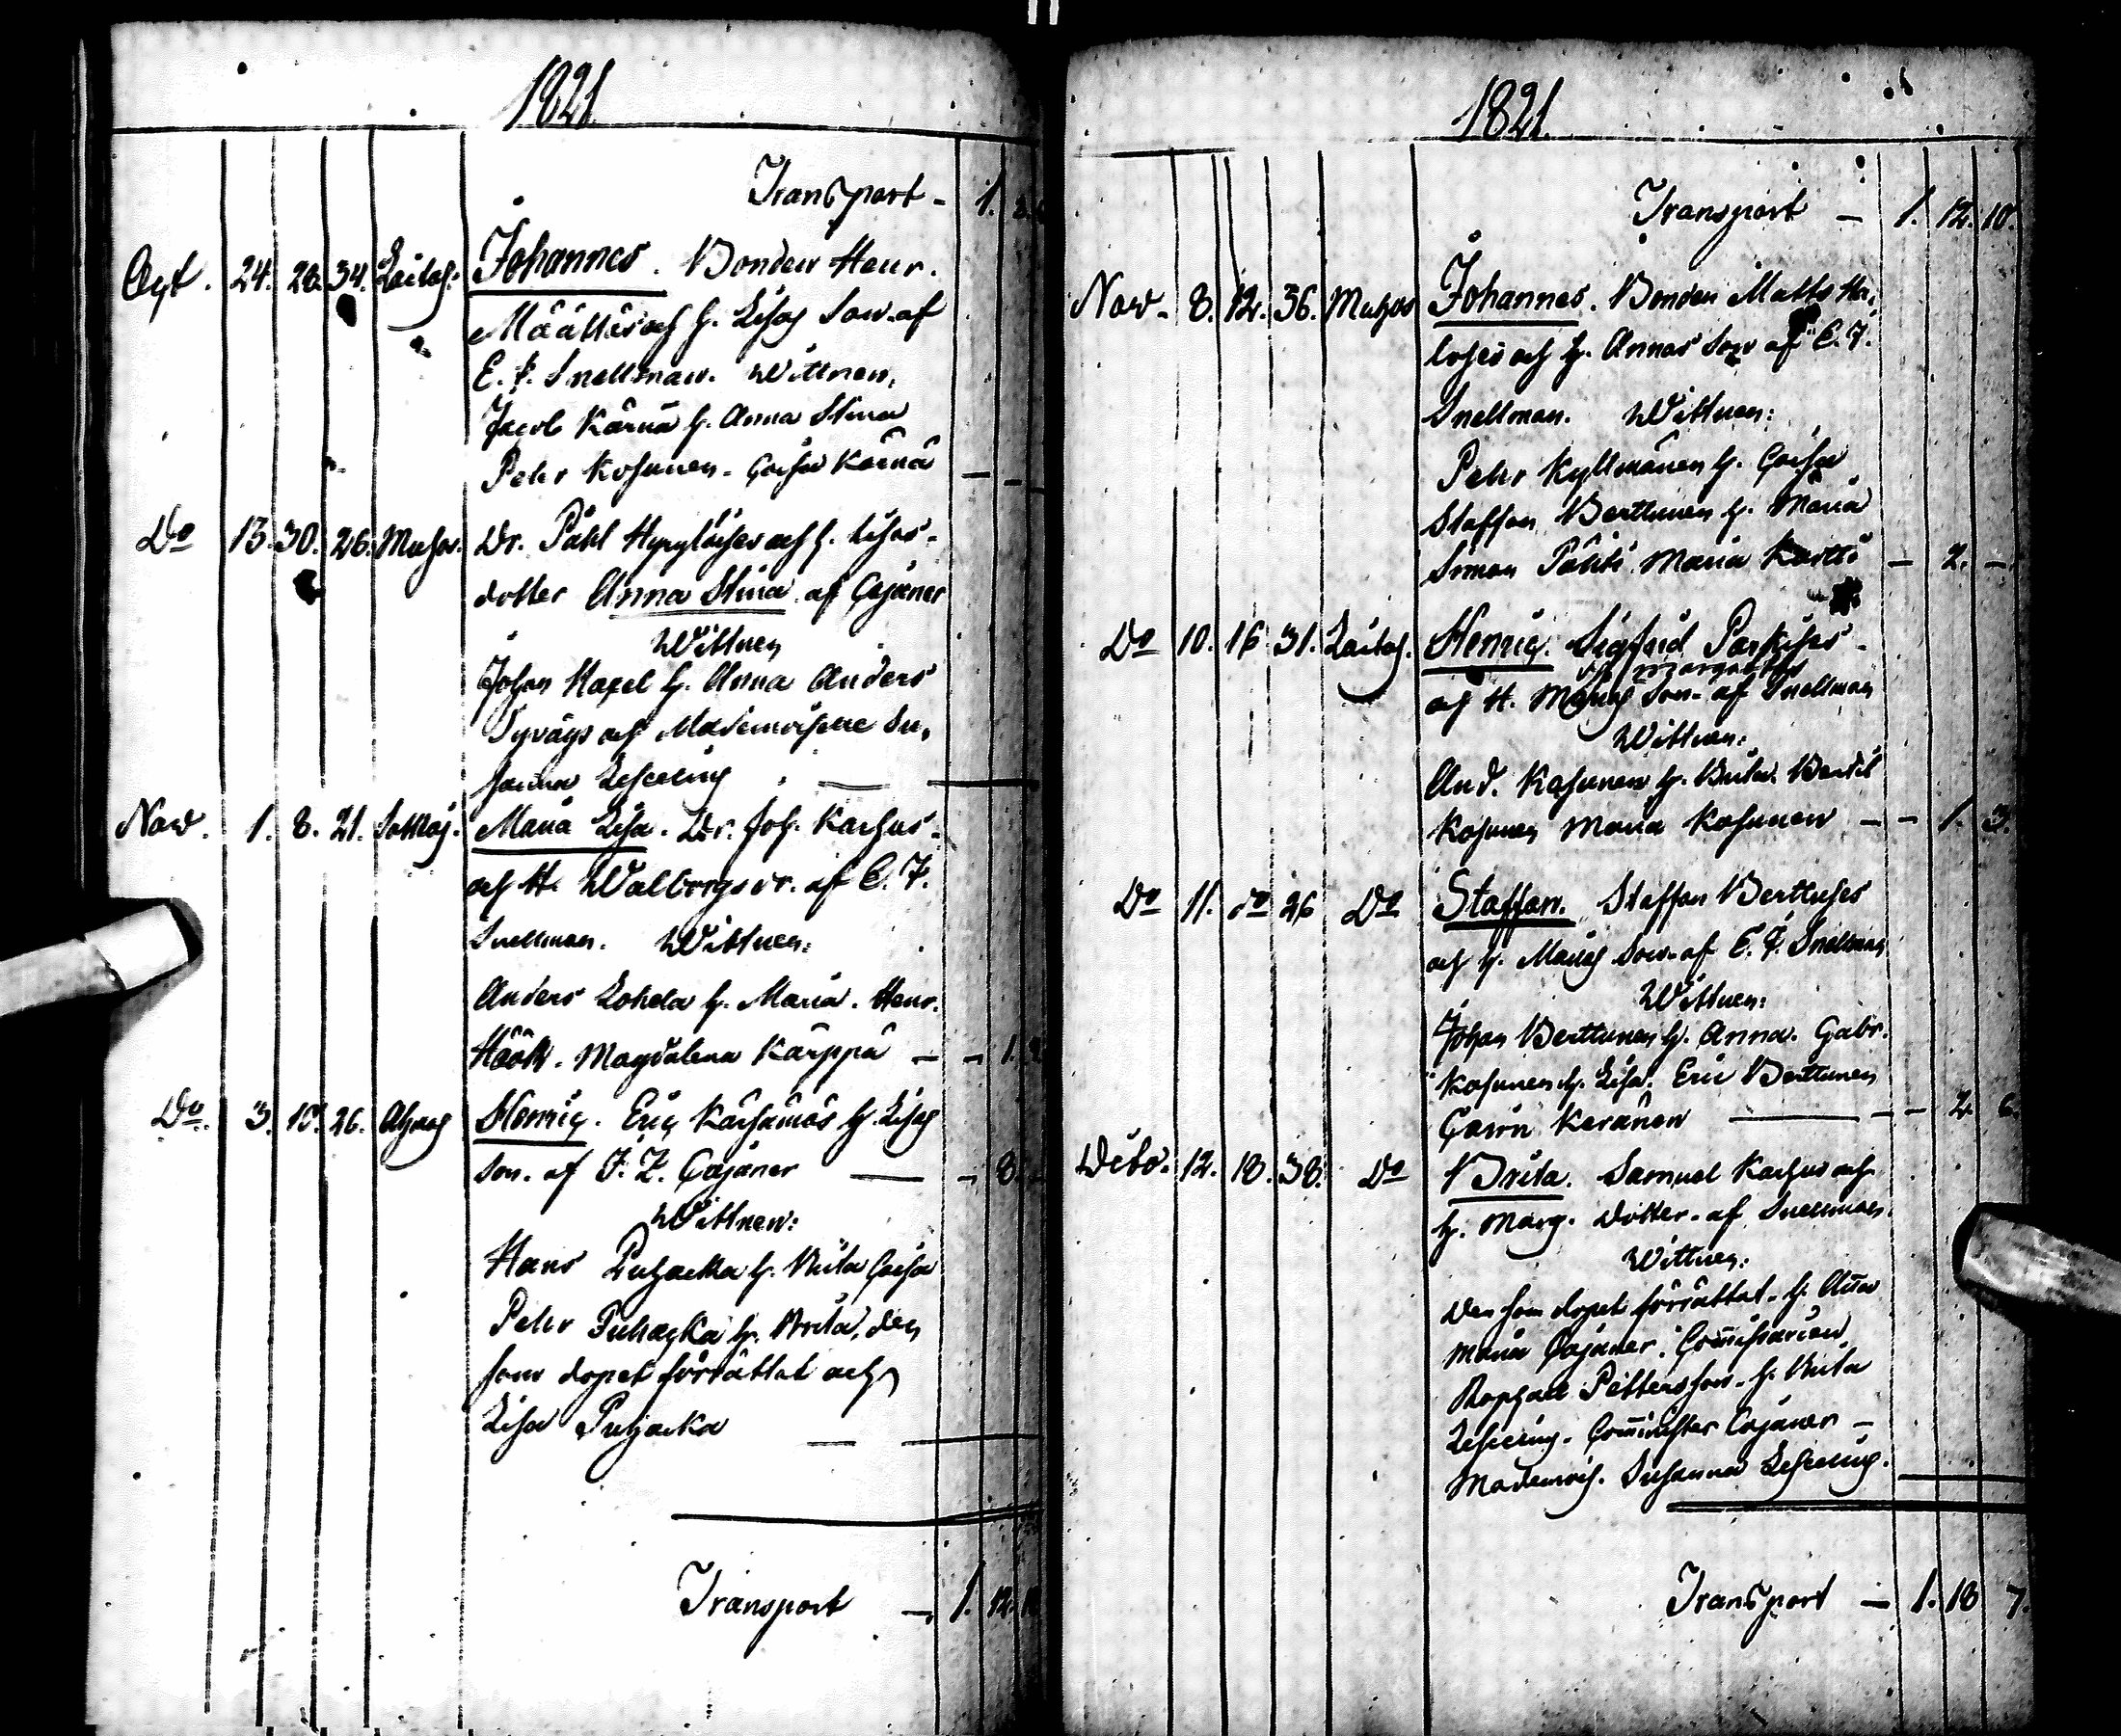 1821
Transport - 1.
Oct. 24. 28. 34. Laitas: Johannes. Bonden Henr.
Määttäs och h. Lisas Son. af
E. F. Snellman. Wittnen,
Jacob Kärnä h. Anna Stina
Pehr Kosunen. Caisa Kärnä
Do 13. 30. 26. Muhos. Dr. Påhl och h. Lisas
dotter Anna Stina af Cajaner
Wittnen
Johan Hapel h. Anna Anders
och Mademoiselle Su,
sanna
Nov. 1. 8. 21. Sotkaj. Maria Lisa. Dr. Joh. Karhus
och H. Walborgs dr. af E. F.
Snellman. Wittnen:
Anders Lohela h. Maria. Henr.
Höök. Magdalena Karppa - - 1.
Do. 3. 10. 26. Ahmas Henric. Eric h. Lisas
Son. af F. Z. Cajaner - - 8.
Wittnen:
Hans Puhacka h. Brita Caisa
Pehr Puhacka h. Brita, den
som dopet förrättat och
Lisa Puhacka
Transport - 1. 12.
1821.
Transport - 1. 12. 10.
Nov. 8. 12. 36. Muhos Johannes. Bonden Matts
och h. Annas Son af E. F.
Snellman. Wittnen:
Pehr Kyllmänen h. Caisa
Staffan Berttunen h. Maria
Simon Maria - 2. -
Do 10. 16. 31. Laitas. Henric. Sigfrid
och H. Margarethas Son. af Snellman
Wittnen:
And. Kosunen h. Brita. Bertil
Kosunen Maria Kosunen - - 1. 3.
Do 11. do 26 Do Staffan. Staffan Berttuses
och h. Marias Son. af E. F. Snellman
Wittnen:
Johan Berttunen h. Anna. Gabr.
Kosunen h. Lisa. Eric Berttunen
Carin Keränen - - 2. 6.
12. 18. 38. Do Brita. Samuel Karhus och
h. Marg. dotter. af Snellman.
Wittnen:
Den som dopet förrättat. h.
Maria Cajaner. Commissarien
Raphael Pettersson. h. Brita
Comminister Cajaner -
Mademois. Susanna
Transport - 1. 18 7.